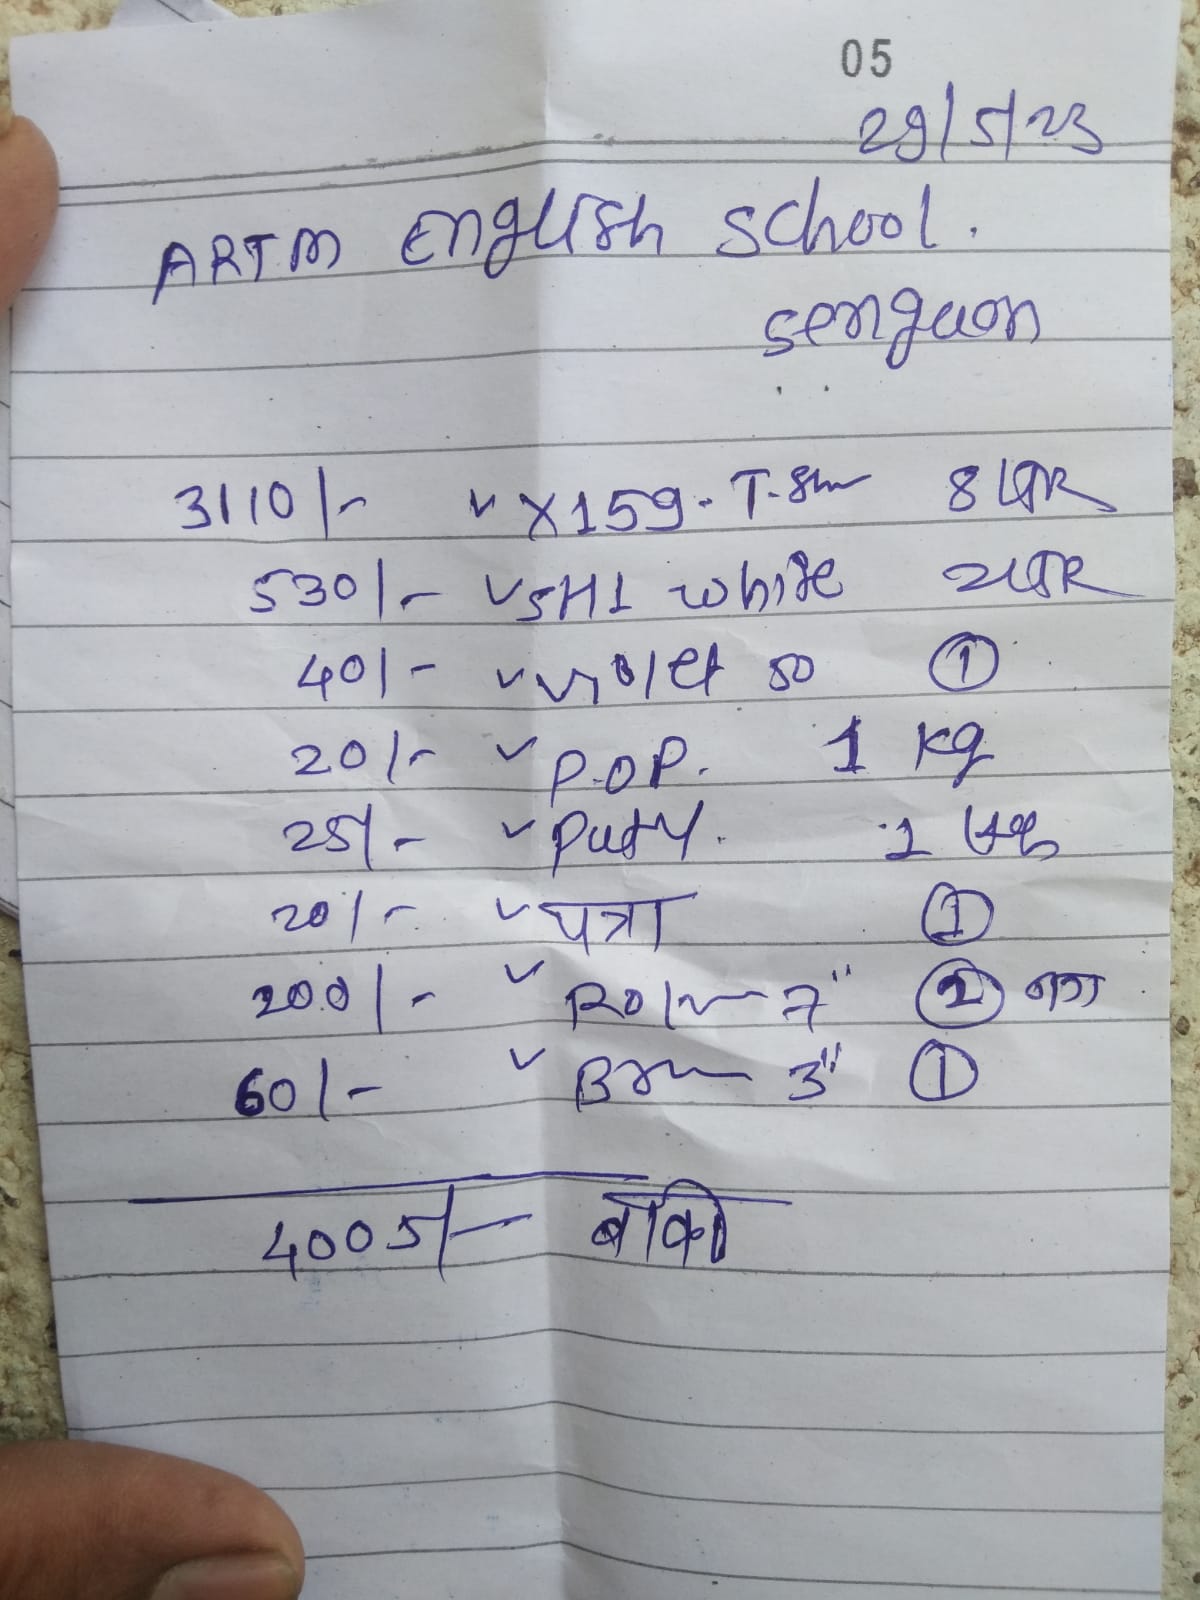 05
29/5/23
ARTM English School.
Sengaon
3110/- ✓ X159. T. 8 LTR
530/- ✓ SH1 white 2 LTR
40/- ✓ violet 50 ①
20/- ✓ P.O.P. 1 Kg
25/- ✓ Puty. 1
20/- ✓ पत्रा ①
200/- ✓ 7" ② नग
60/- ✓ 3" ①
4005/- बाकी